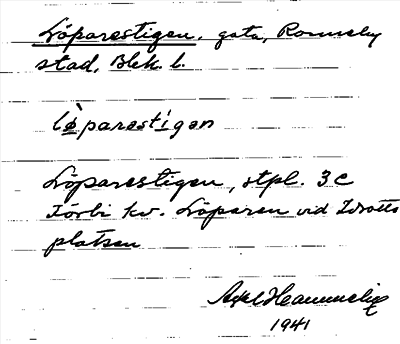 Löparestigen, gata, Ronneby
stad, Blek. l.
lø̀parestígan
Löparestigen, stpl. 3 c
Förbi kv. Löparen vid Idrotts
platsen
Axel
1941